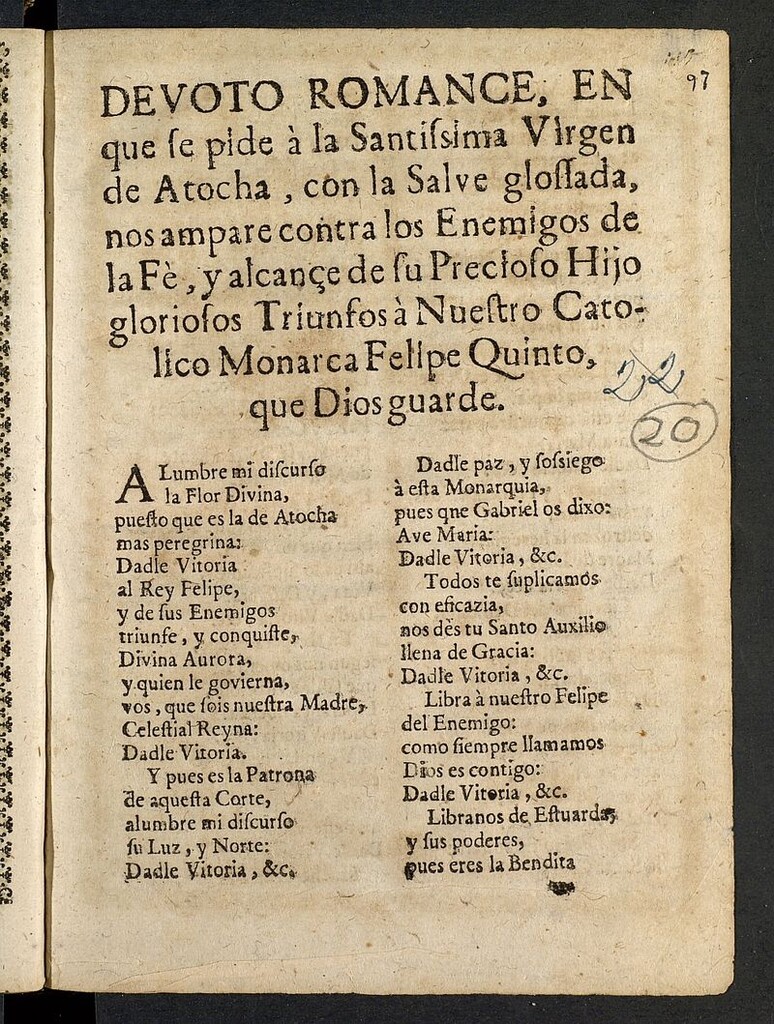 97
DEVOTO ROMANCE, EN
que ſe pide à la Santiſsima Virgen
de Atocha, con la Salve gloſſada,
nos ampare contra los Enemigos de
la Fè, y alcançe de ſu Precioſo Hijo
glorioſos Triunfos à Nueſtro Cato-
lico Monarca Felipe Quinto,
que Dios guarde.
22
20
ALumbre mi diſcurſo
la Flor Divina,
pueſto que es la de Atocha
mas peregrina:
Dadle Vitoria
al Rey Felipe,
y de ſus Enemigos
triunfe, y conquiſte,
Divina Aurora,
y quien le govierna,
vos, que ſois nueſtra Madre,
Celeſtial Reyna:
Dadle Vitoria.
Y pues es la Patrona
de aqueſta Corte,
alumbre mi diſcurſo
ſu Luz, y Norte:
Dadle Vitoria, &c.
Dadle paz, y ſoſsiego
à eſta Monarquia,
pues qne Gabriel os dixo:
Ave Maria:
Dadle Vitoria, &c.
Todos te ſuplicamos
con eficazia,
nos dès tu Santo Auxilio
llena de Gracia:
Dadle Vitoria, &c.
Libra à nueſtro Felipe
del Enemigo:
como ſiempre llamamos
Dios es contigo:
Dadle Vitoria, &c.
Libranos de Eſtuardas
y ſus poderes,
pues eres la Bendita